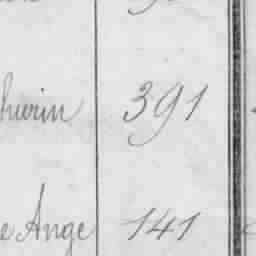 thurin 391
e Ange 141